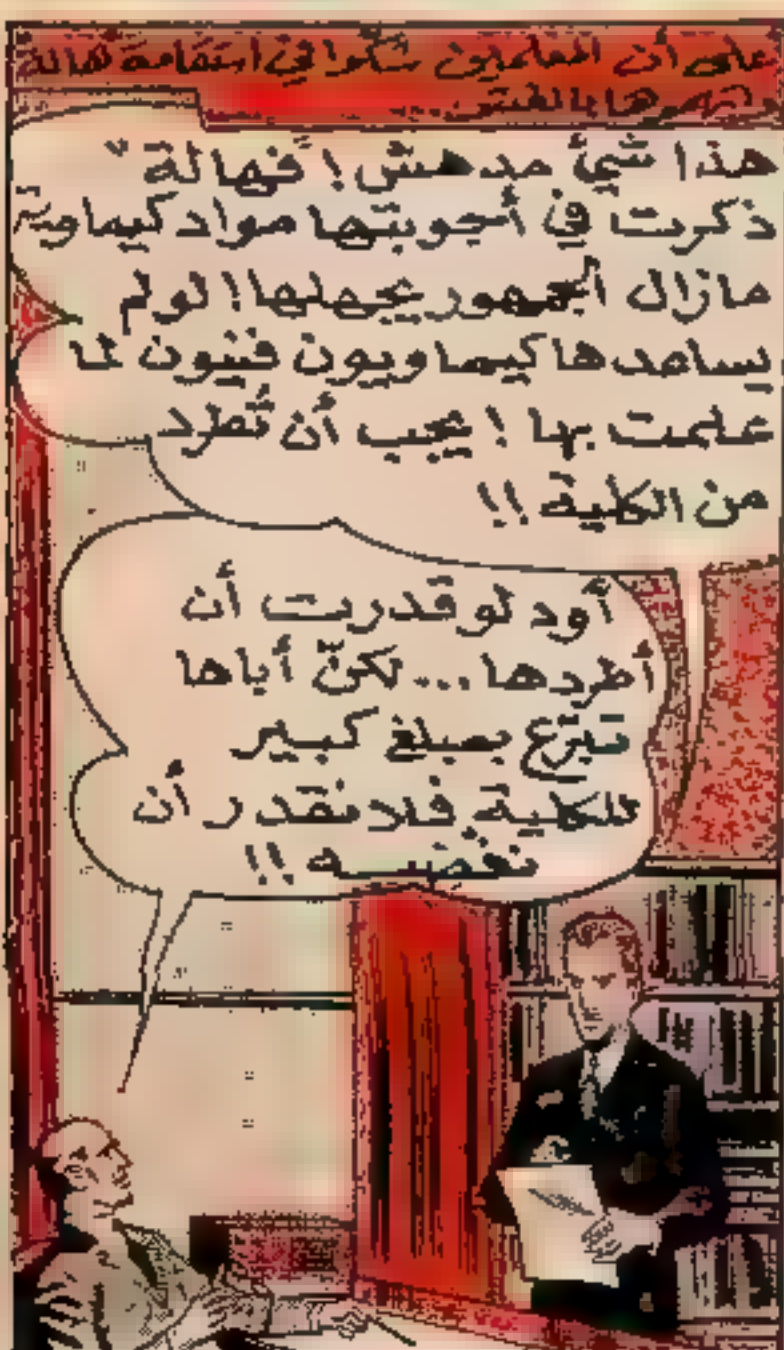 على أن المعلمين شكوا في استقامة هالة
واتهموها بالغش...
هذا شيء مدهش! فهالة"
ذكرت في أجوبتها مواد كيماوية
مازال الجمهور يجهلها! لولم
يساعدها كيماويون فنيون لما
علمت بها! يجب أن تُطرد
من الكلية!!
أود لو قدرت أن
أطردها... لكنّ أباها
تبرّع بمبلغ كبير
للكلية فلا نقدر أن
نغضبه!!